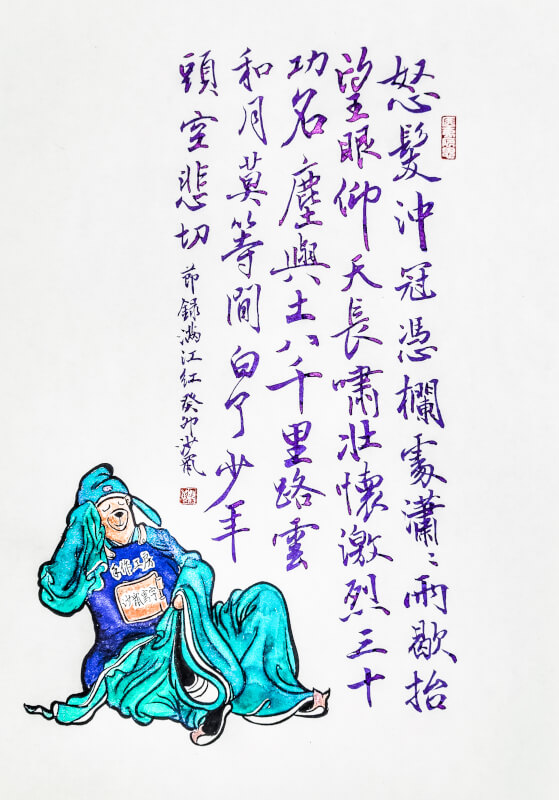 怒髮沖冠憑欄處瀟〻雨歇抬
望眼仰天長嘯壯懷激烈三十
功名塵與土八千里路雲
和月莫等閒白了少年
頭空悲切
節錄滿江紅癸卯